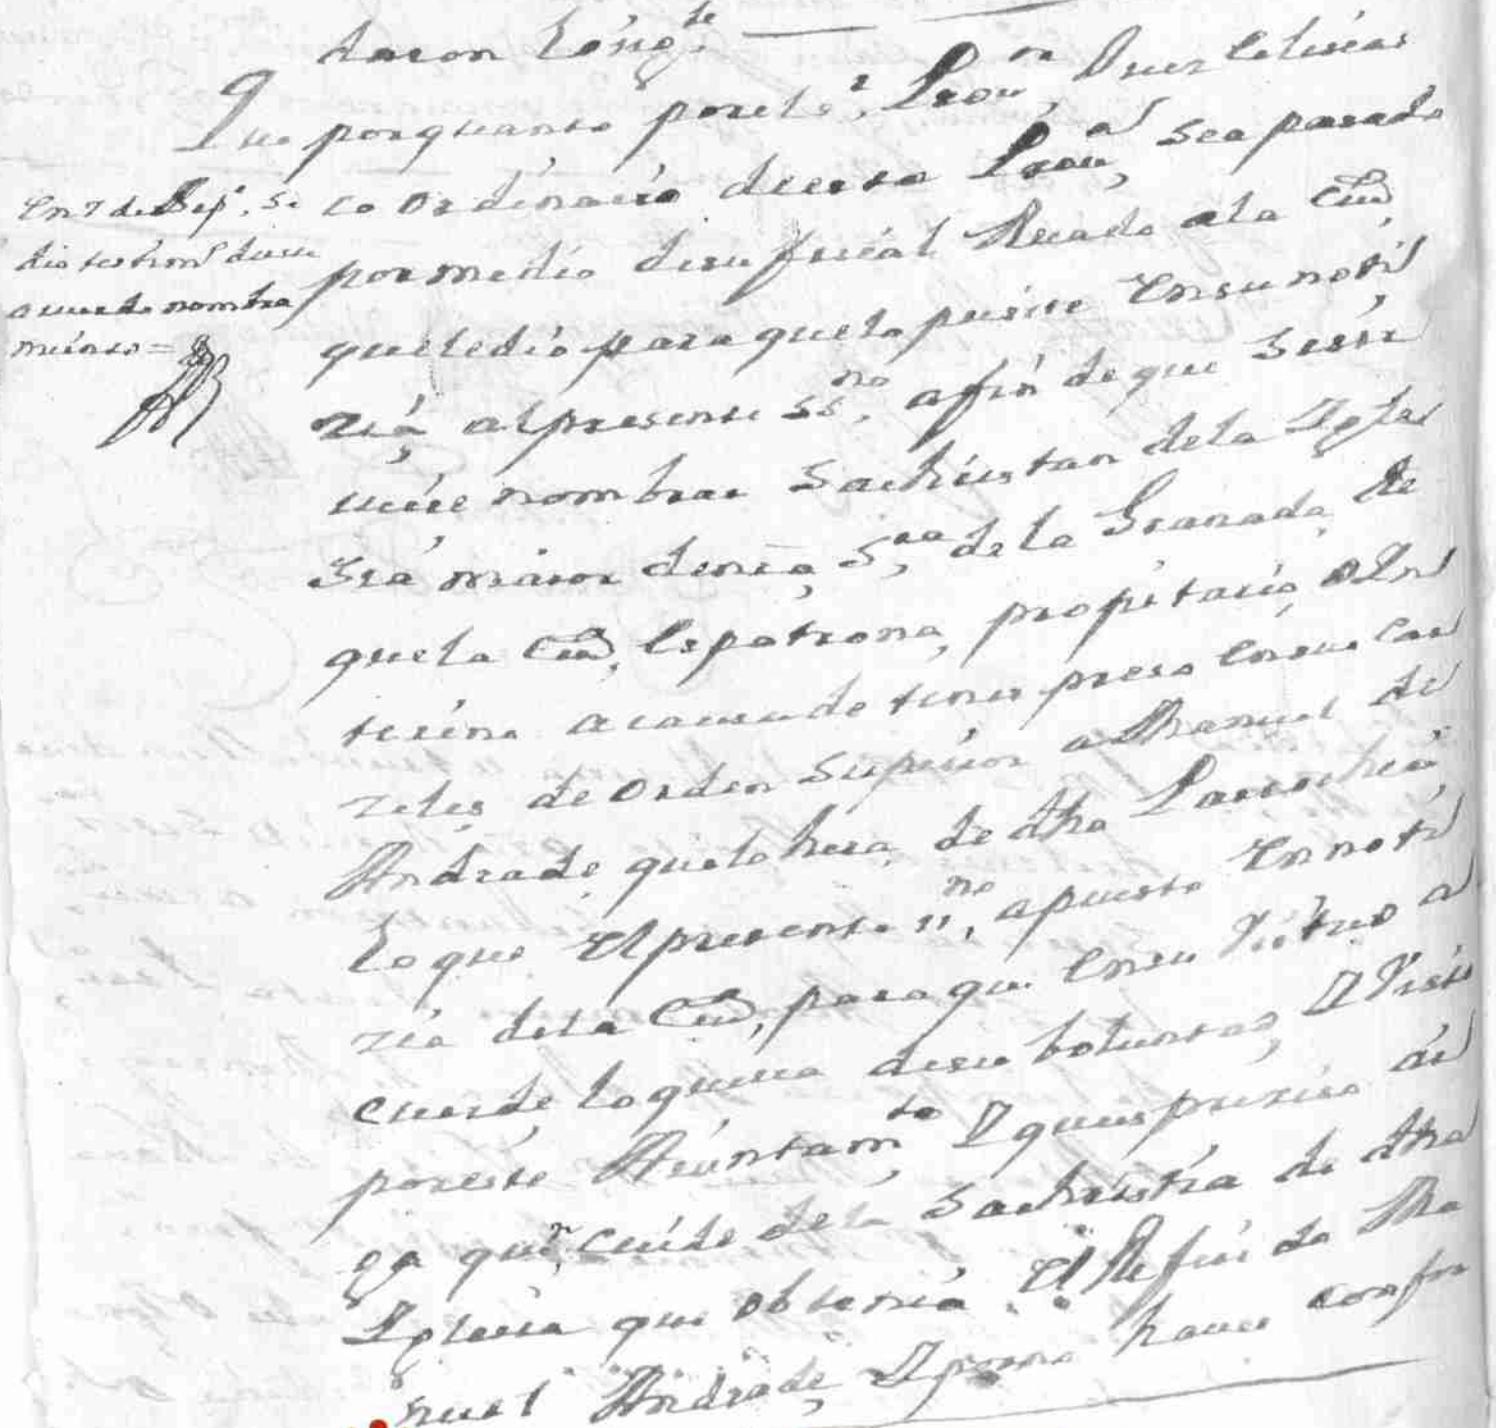 daron los sig.te
Que por quanto por el s.r Prov.or Juez Eclesias
co ordinario de esta Prov.a se a pasado
por medio de su fiscal Recado a la Ciu.d
que le dio para que lo pusiese en su noti
zia al presente ss.no a fin de que se sir
viese nombrar Sachristan de la Ygle
sia maior de nra S.ra de la Granada de
que la Ciu.d es patrona, propietario o in
terino a causa de tener preso en sus car
zeles de orden superior a Manuel de
Andrade que lo hera de dha Parrochia
lo que el presente ss.no a puesto en noti
zia de la Ciu.d para que en su virtud a
cuerde lo que sea de su boluntad, y visto
por este Aiuntam.to y que es preciso ai
ga quien cuide de la Sachristia de dha
Yglesia que obtenia el Referido Ma
nuel Andrade, y para haver confor
En 7 de Sep.e se
dio testim.o de su
acuerdo nombra
miento =